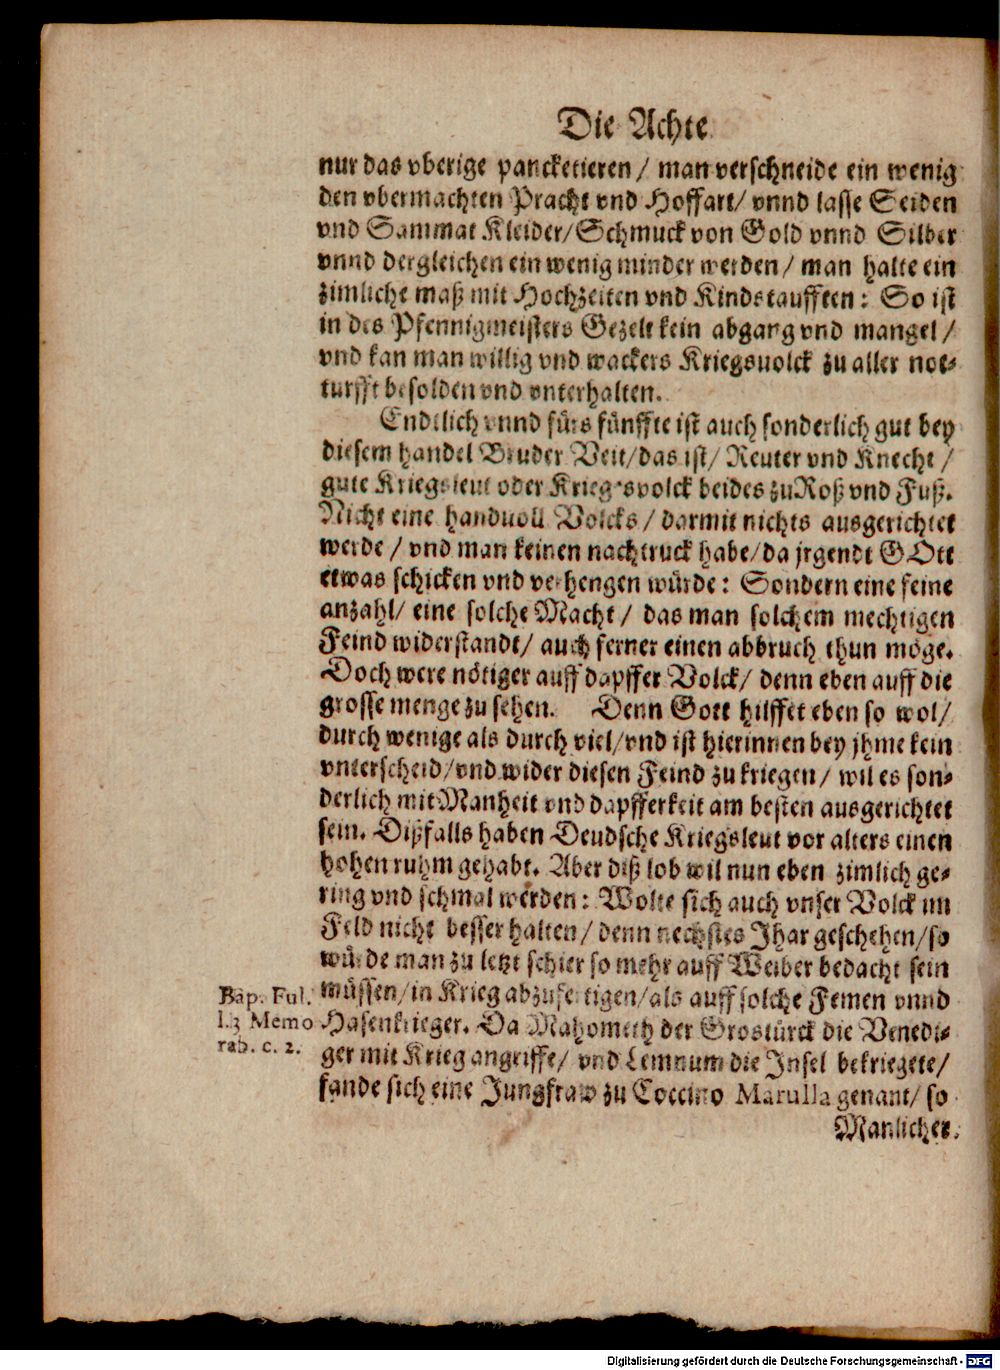 Die Achte
nur das vberige pancketieren / man verschneide ein wenig
den vbermachten Pracht vnd Hoffart/ vnnd lasse Seiden
vnd Sammat Kleider/Schmuck von Gold vnnd Silber
vnnd dergleichen ein wenig minder werden / man halte ein
zimliche maß mit Hochzeiten vnd Kindstaufften: So ist
in des Pfennigmeisters Gezelt kein abgang vnd mangel /
vnd kan man willig vnd wackers Kriegsuolck zu aller not-
turfft besolden vnd vnterhalten.
Endtlich vnnd fürs fünffte ist auch sonderlich gut bey
diesem handel Bruder Veit/das ist/ Reuter vnd Knecht /
gute Kriegsleut oder Kriegsvolck beides zu Roß vnd Fuß.
Nicht eine handuoll Volcks / darmit nichts ausgerichtet
werde / vnd man keinen nachtruck habe/da jrgendt GOtt
etwas schicken vnd verhengen würde: Sondern eine feine
anzahl/ eine solche Macht / das man solchem mechtigen
Feind widerstandt/ auch ferner einen abbruch thun möge.
Doch were nötiger auff dapffer Volck/ denn eben auff die
grosse menge zu sehen. Denn Gott hilffet eben so wol/
durch wenige als durch viel/vnd ist hierinnen bey jhme kein
vnterscheid/vnd wider diesen Feind zu kriegen/ wil es son-
derlich mit Manheit vnd dapfferkeit am besten ausgerichtet
sein. Dißfalls haben Deudsche Kriegsleut vor alters einen
hohen ruhm gehabt. Aber diß lob wil nun eben zimlich ge-
ring vnd schmal werden: Wolte sich auch vnser Volck im
Feld nicht besser halten / denn nechstes Jhar geschehen/so
würde man zu letzt schier so mehr auff Weiber bedacht sein
müssen/in Krieg abzufertigen/als auff solche Femen vnnd
Hasenkrieger. Da Mahometh der Grostürck die Venedi-
ger mit Krieg angriffe/ vnd Lemnum die Insel bekriegete/
fande sich eine Jungfraw zu Coccino Marulla genant/ so
Manlicher.
Bap. Ful.
l.3 Memo
rab. c. 2.
Digitalisierung gefördert durch die Deutsche Forschungsgemeinschaft - DFG